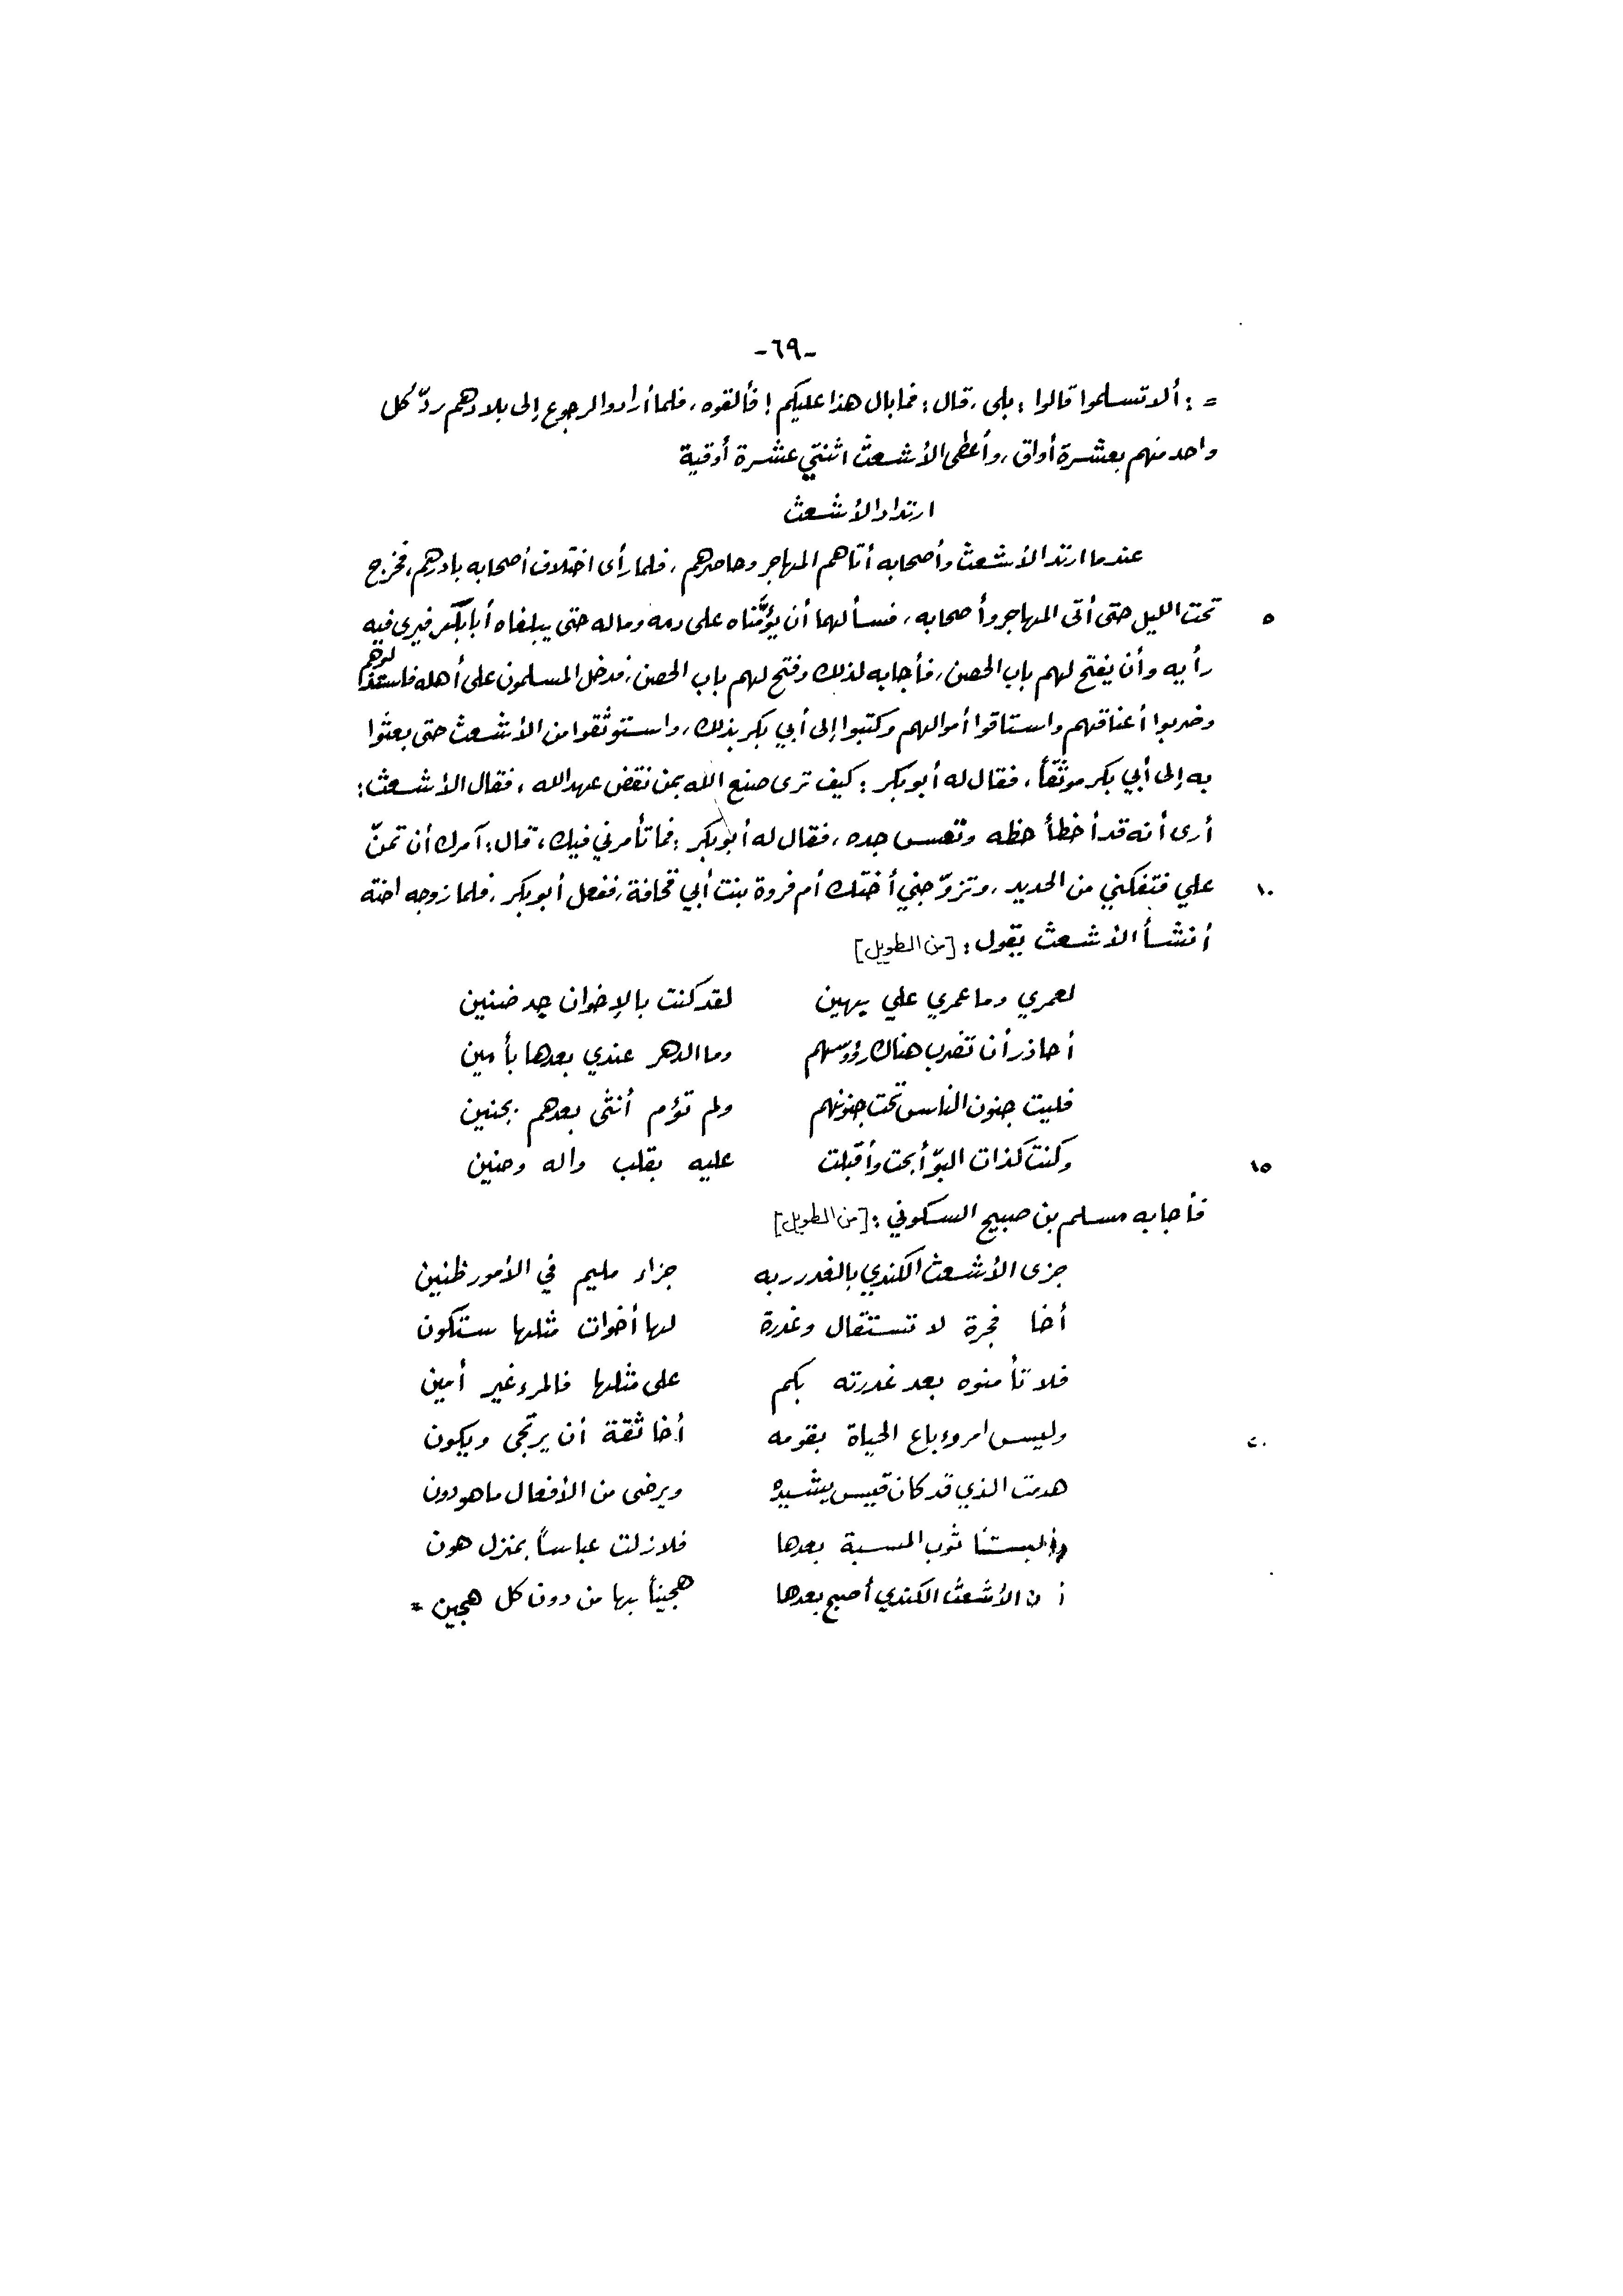 -٦٩-
= : ألا تسلموا قالوا : بلى، قال : فما بال هذا عليكم ! فألقوه، فلما أرادوا الرجوع إلى بلادهم ردّ كل
واحد منهم بعشرة أواق، وأعطى الأشعث اثنتي عشرة أوقية
ارتداد الأشعث
عندما ارتد الأشعث وأصحابه أتاهم المهاجر وحاصرهم، فلما رأى اختلاف أصحابه بادرهم، فخرج
٥ تحت الليل حتى أتى المهاجر وأصحابه، فسألهما أن يؤمّناه على دمه وماله حتى يبلغاه أبا بكر فيرى فيه
رأيه وأن يفتح لهم باب الحصن، فأجابه لذلك وفتح لهم باب الحصن، فدخل المسلمون على أهله فاستنزلوهم
وضربوا أعناقهم واستاقوا أموالهم وكتبوا إلى أبي بكر بذلك، واستوثقوا من الأشعث حتى بعثوا
به إلى أبي بكر موثّقاً، فقال له أبو بكر : كيف ترى صنع الله بمن نقض عهد الله، فقال الأشعث :
أرى أنه قد أخطأ حظه وتعس جده، فقال له أبو بكر : فما تأمرني فيك، قال : آمرك أن تمنّ
١٠ علي فتفكني من الحديد، وتزوّجني أختك أم فروة بنت أبي قحافة، ففعل أبو بكر، فلما زوجه اخته
أنشأ الأشعث يقول : [من الطويل]
لعمري وما عمري علي بهين لقد كنت بالإخوان جد ضنين
أحاذر أن تضرب هناك رؤوسهم وما الدهر عندي بعدها بأمين
فليت جنون الناس تحت جنونهم ولم تؤم أنثى بعدهم بجنين
١٥ وكنت كذات البوّ أبحت وأقبلت عليه بقلب واله وحنين
فأجابه مسلم بن صبيح السكوني : [من الطويل]
جزى الأشعث الكندي بالغدر ربه جزاء مليم في الأمور ظنين
أخا فجرة لا تستقال وغدرة لها أخوات مثلها ستكون
فلا تأمنوه بعد غدرته بكم على مثلها فالمرء غير أمين
٢٠ وليس امروء باع الحياة بقومه أخا ثقة أن يرتجى ويكون
هدمت الذي قد كان قيس يشيده ويرضى من الأفعال ما هو دون
وألبستنا ثوب المسبة بعدها فلا زلت عباساً بمنزل هون
أن الأشعث الكندي أصبح بعدها هجيناً بها من دون كل هجين =